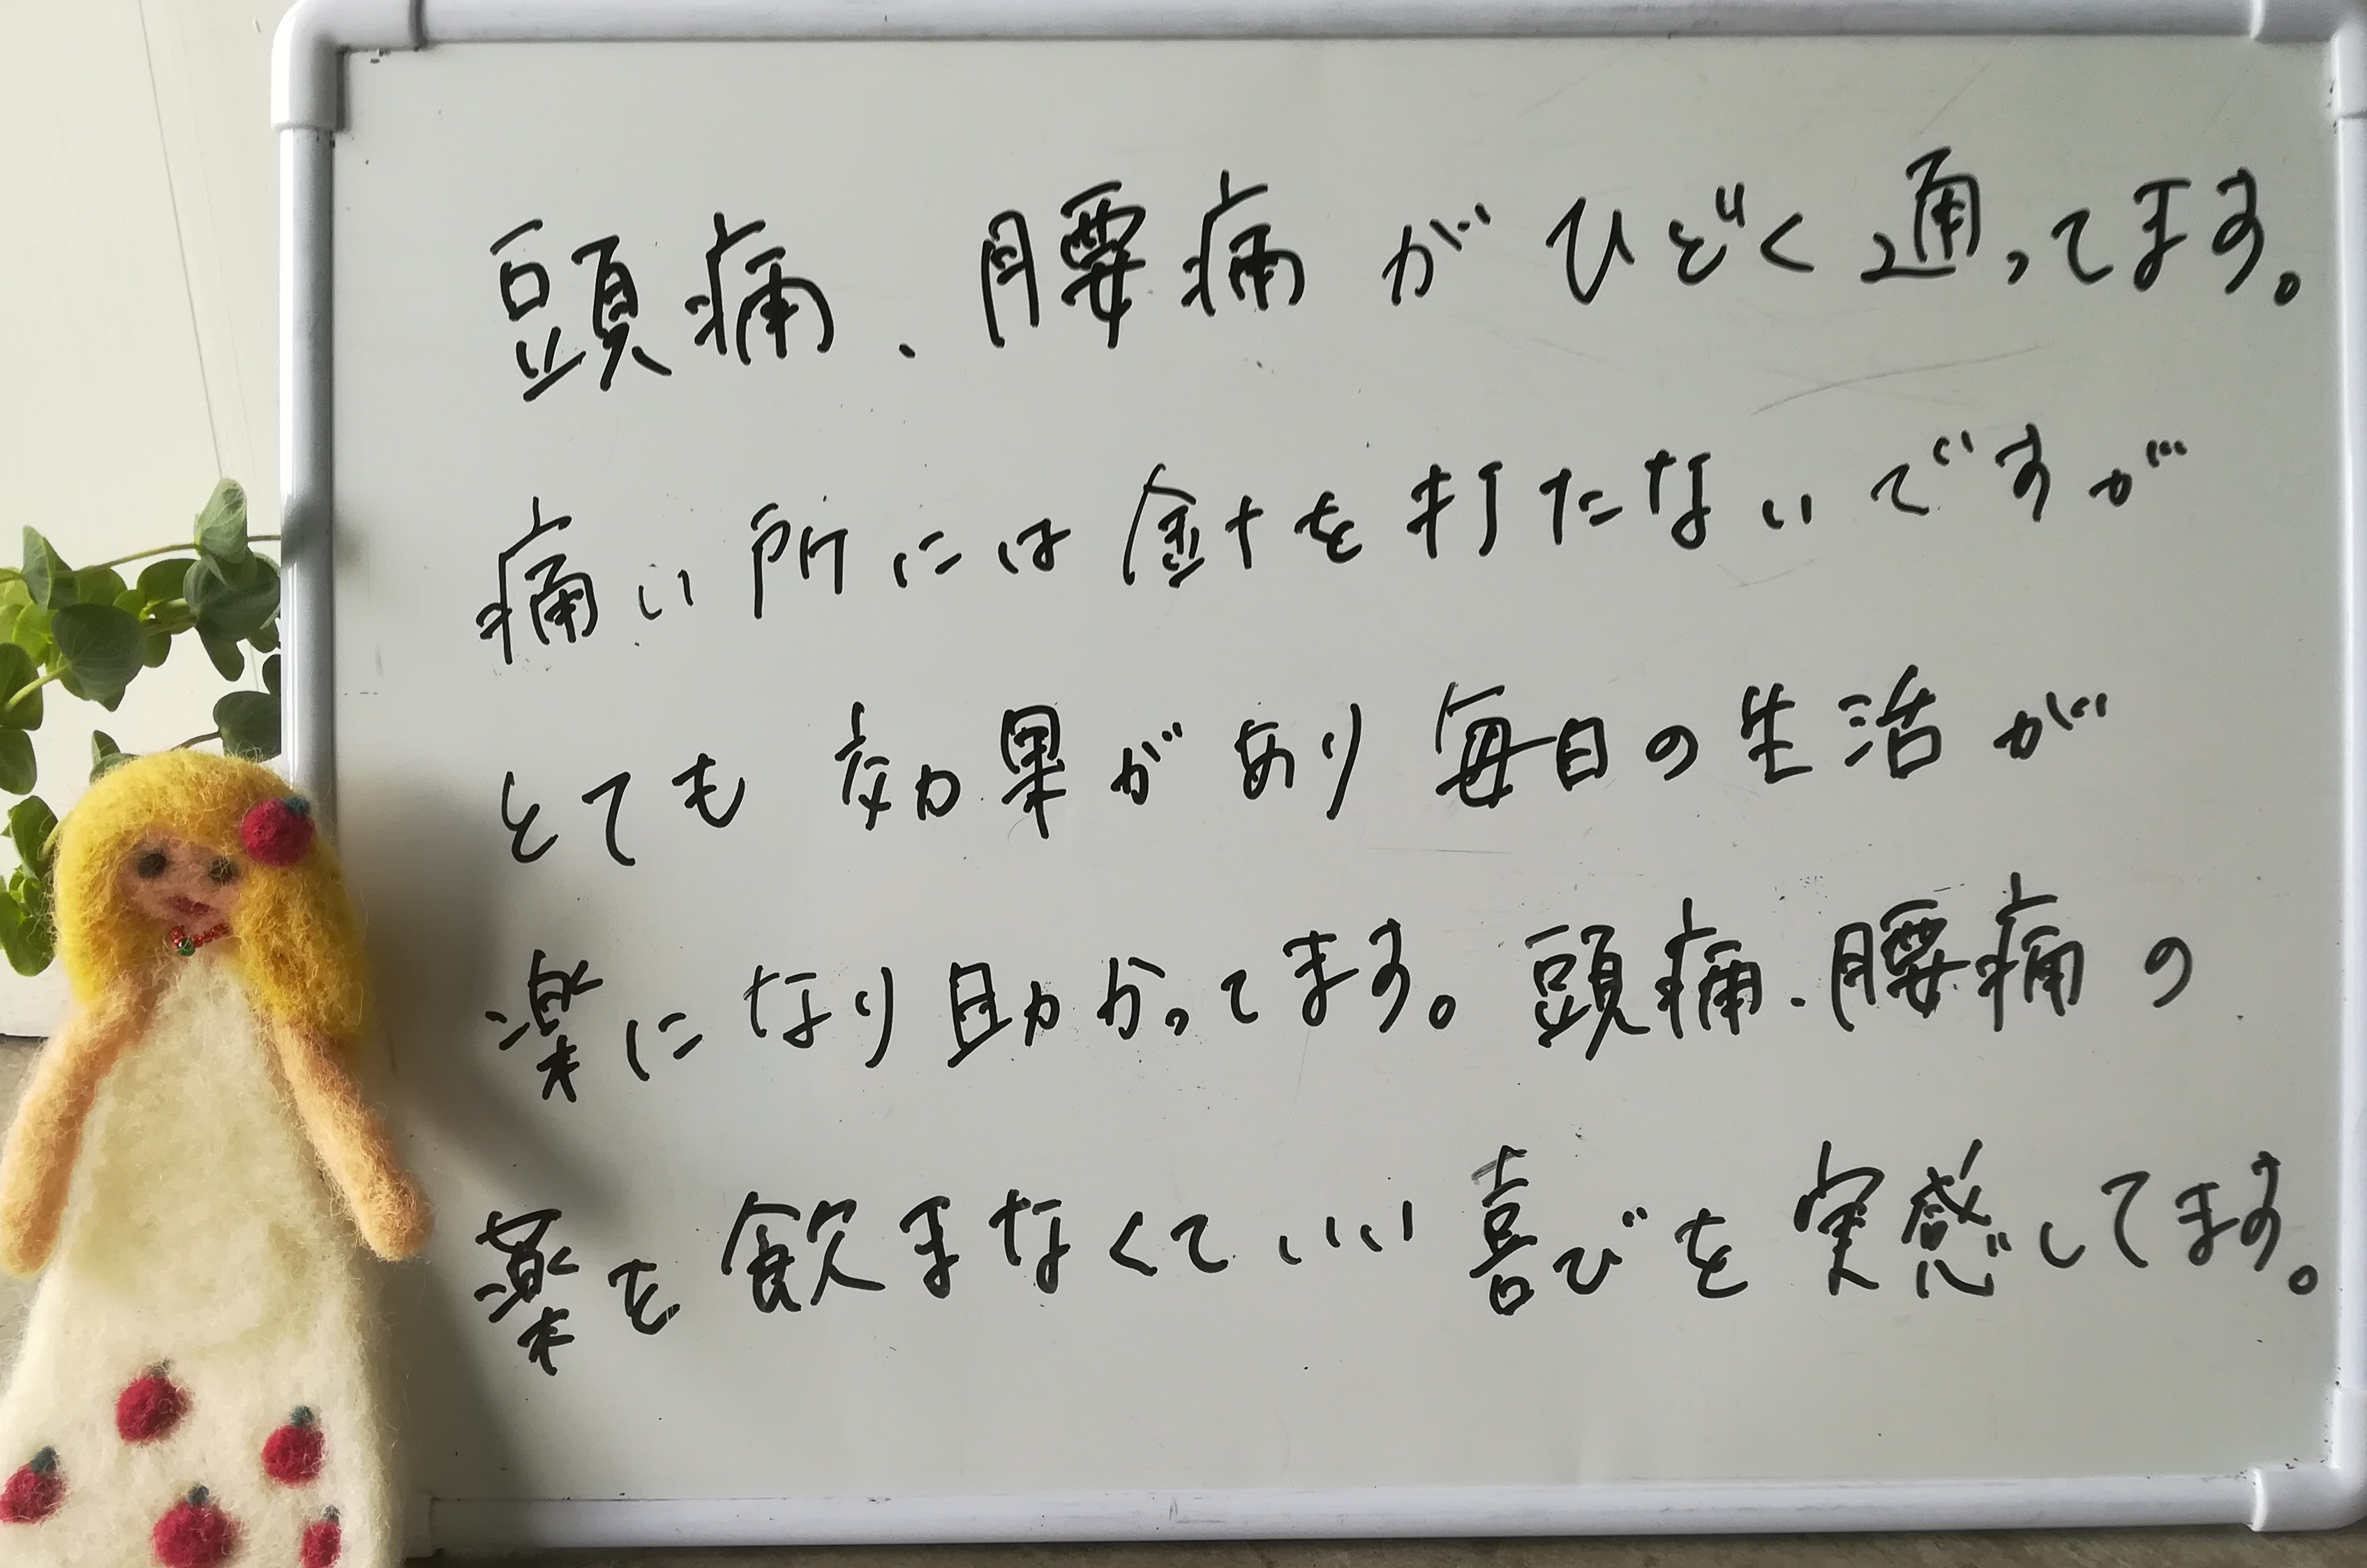 頭痛、腰痛がひどく通ってます。
痛い所には針を打たないですが
とても効果があり毎日の生活が
楽になり助かってます。頭痛.腰痛の
薬を飲まなくていい喜びを実感してます。